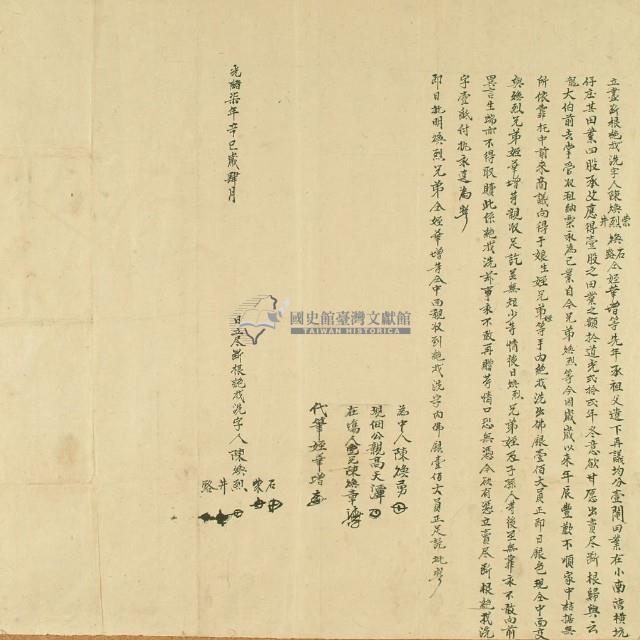 立盡斷根絕找洗字人陳煥烈 煥 仝姪華增等先年承祖父遺下再議均分壹鬮田業在小南灣橫坑
崇井 石路
仔庄其田業四股承父應得壹股之田業之額於道光貳拾貳年冬意欲井愿出賣尽斷根歸與云
龍大伯前去掌管收租納栗永為己業自今兄弟煥烈等今因歲歲以來年辰豐歉不順家中枯据無
所依靠托中前來商議向得于娘生姪兄弟等手內絕找洗出佛銀壹佰大員正即日銀色現仝中面交
與煥烈兄弟姪華增等親收足訖並無短少等情後日煥烈兄弟姪及子孫人等後並無靠永不敢向前
異言生端亦不得取贖此係絕找洗斧事永不敢再贈等情口恐無憑今欲有憑立賣尽斷根絕找洗
字壹紙付执永遠為炤
即日批明煥烈兄弟仝姪華增等仝中面親收到絕找洗字內佛銀壹佰大員正足訖批炤
為中人陳煥勇
現佃公親高天潭
在塲人 陳煥章
代筆姪華增
光緒柒年辛巳歲肆月
日立尽斷根絕找洗字人陳煥烈
石 崇 井 路
國史館臺灣文獻館
TAIWAN HISTORICA